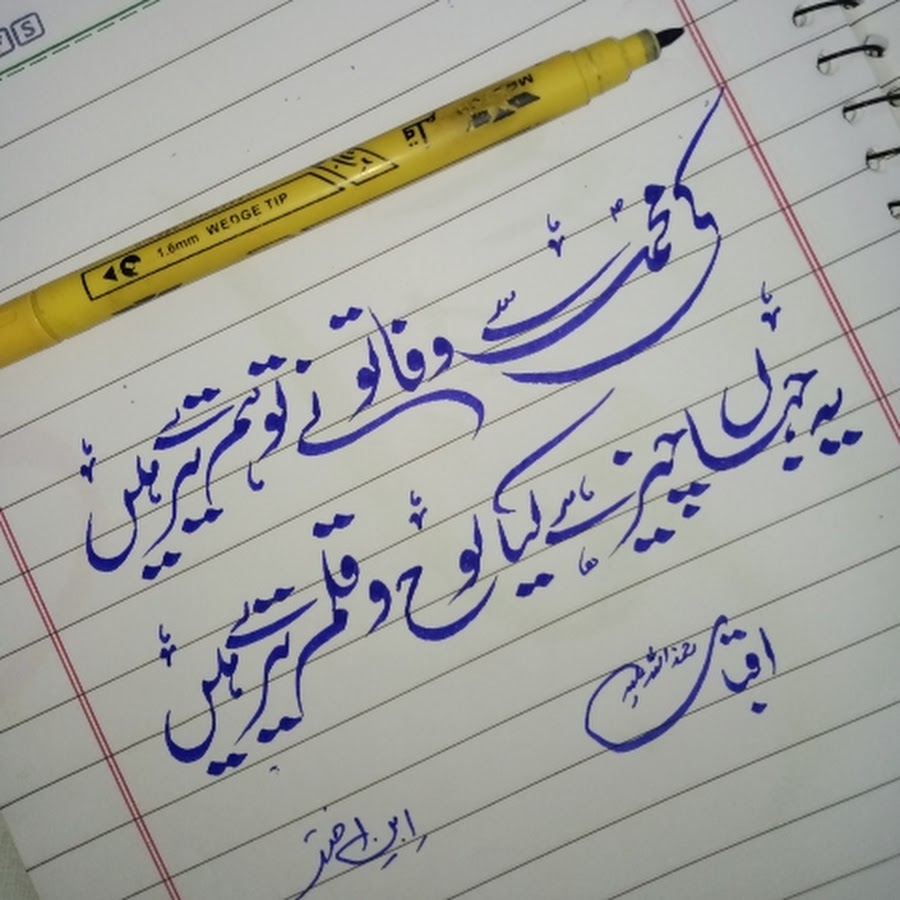 1.6mm WEDGE TIP
کی محمدؐ سے وفا تو نے تو ہم تیرے ہیں
یہ جہاں چیز ہے کیا لوح و قلم تیرے ہیں
اقبال رحمۃ اللہ علیہ
ابن